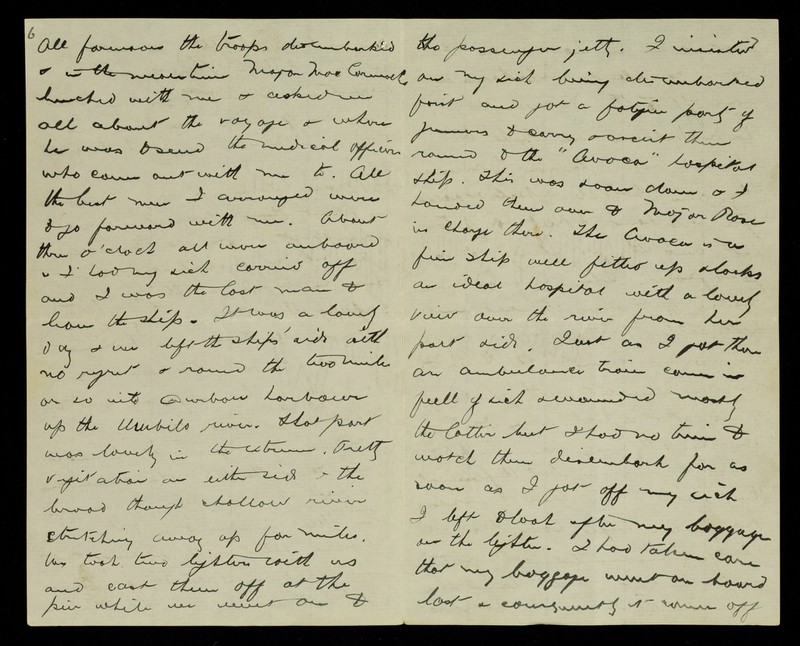 6
All forenoon the troops disembarked
& in the meantime Major MacCormack
lunched with me & asked me
all about the voyage & where
he was to send the medical officers
who came out with me to. All
the best men I arranged were
to go forward with me. About
three o'clock all were onboard
& I had my sick carried off
and I was the last man to
leave the ship. It was a lovely
day & we left the ships' side with
no regret & round the two miles
or so into Durban harbour
up the Umbilo river. That part
was lovely in the extreme. Pretty
vegetation on either side & the
broad though shallow river
stretching away up for miles.
We took two lighters with us
and cast them off at the
pier while we went on to
the passenger jetty. I insisted
on my sick being disembarked
first and got a fatigue party of
to carry & assist them
round to the "Avoca" hospital
ship. This was soon done & I
handed them over to Major Rose
in charge there. The Avoca is a
fine ship well fitted up & looks
an ideal hospital with a lovely
view over the river from her
port side. Just as I got there
an ambulance train came in
full of sick & wounded mostly
the latter but I had no time to
watch them disembark for as
soon as I got off my sick
I left to look after my baggage
on the lighter. I had taken care
that my baggage went on board
last & consequently it came off